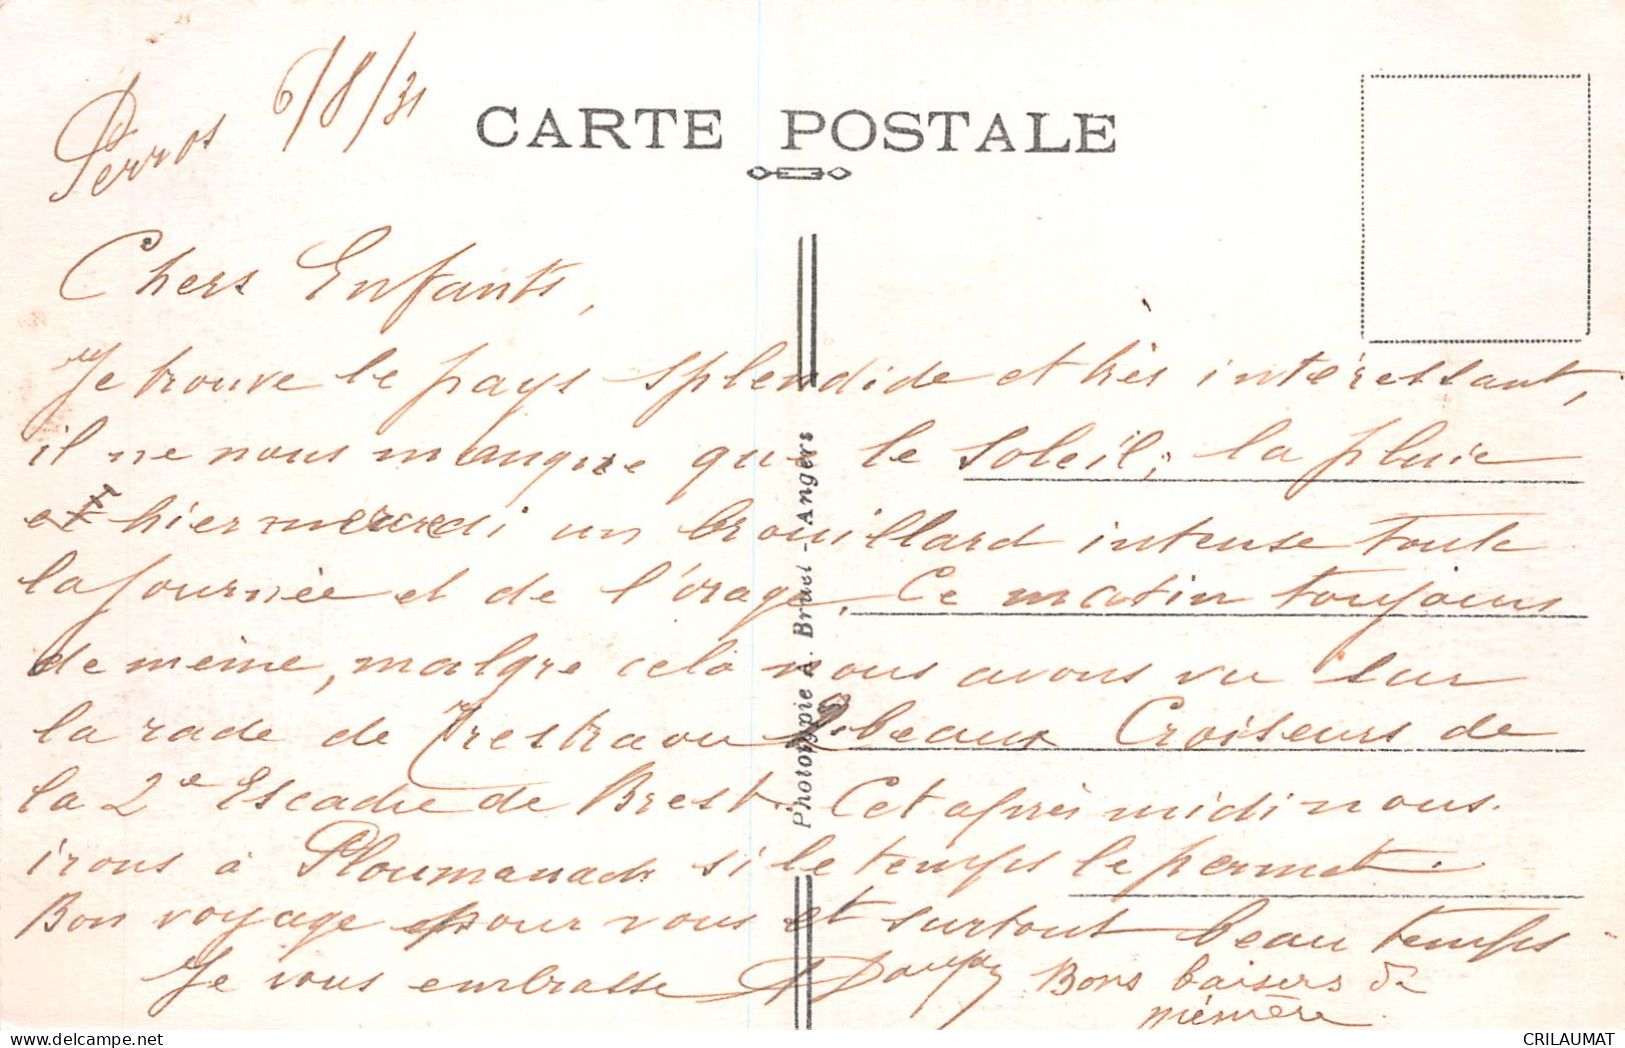 Perros 6/8/31
CARTE POSTALE
Chers Enfants,
Je trouve le pays splendide et très intéressant,
il ne nous manque que le soleil; la pluie
et hier mercredi un brouillard intense toute
la journée et de l'orage. Ce matin toujours
de même, malgré cela nous avons vu sur
la rade de Trestraou 2 beaux Croiseurs de
la 2e Escadre de Brest. Cet après midi nous
irons à Ploumanach si le temps le permet.
Bon voyage pour vous et surtout beau temps
Je vous embrasse
Bons baisers de
mémère
Phototypie A. Bruel - Angers
CRILAUMAT